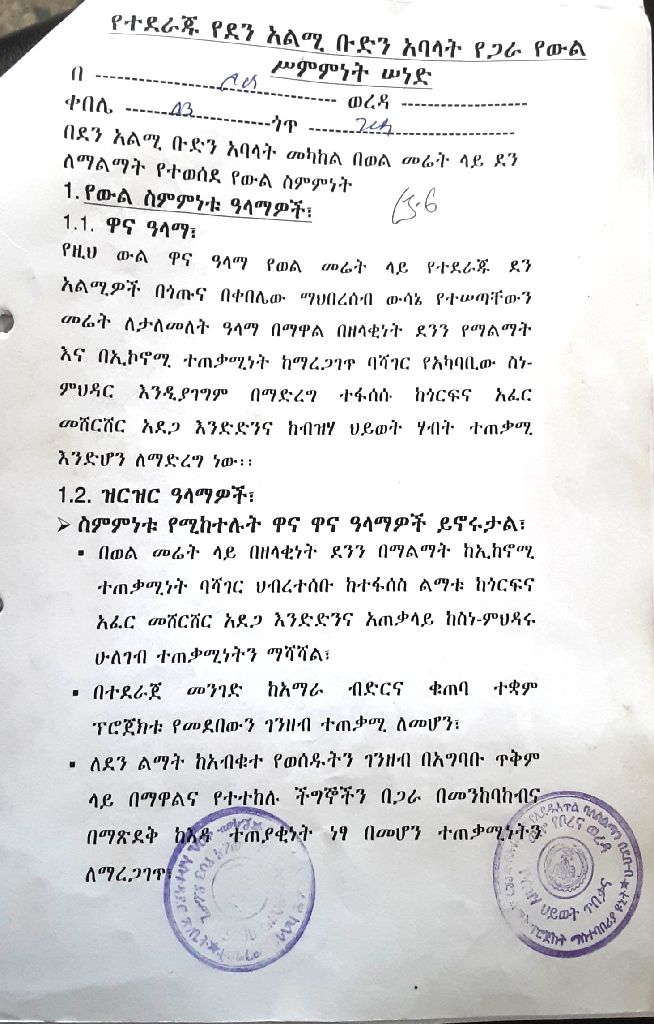 የተደራጁ የደን አልሚ ቡድን አባላት የጋራ የውል
ሥምምነት ሠነድ
በ ---------- ---------- ወረዳ ----------
ቀበሌ ---------- 03 ----------ጎጥ ----------
በደን አልሚ ቡድን አባላት መካከል በወል መሬት ላይ ደን
ለማልማት የተወሰደ የውል ስምምነት
1. የውል ስምምነቱ ዓላማዎች፣
1.1. ዋና ዓላማ፣
የዚህ ውል ዋና ዓላማ የወል መሬት ላይ የተደራጁ ደን
አልሚዎች በጎጡና በቀበሌው ማህበረሰብ ውሳኔ የተሠጣቸውን
መሬት ለታለመለት ዓላማ በማዋል በዘላቂነት ደንን የማልማት
እና በኢኮኖሚ ተጠቃሚነት ከማረጋገጥ ባሻገር የአካባቢው ስነ-
ምህዳር እንዲያገግም በማድረግ ተፋሰሱ ከጎርፍና አፈር
መሸርሸር አደጋ እንድድንና ከብዝሃ ህይወት ሃብት ተጠቃሚ
እንድሆን ለማድረግ ነው፡፡
1.2. ዝርዝር ዓላማዎች፣
➢ ስምምነቱ የሚከተሉት ዋና ዋና ዓላማዎች ይኖሩታል፣
▪ በወል መሬት ላይ በዘላቂነት ደንን በማልማት ከኢከኖሚ
ተጠቃሚነት ባሻገር ህብረተሰቡ ከተፋሰስ ልማቱ ከጎርፍና
አፈር መሸርሸር አደጋ እንድድንና አጠቃላይ ከስነ-ምህዳሩ
ሁለገብ ተጠቃሚነትን ማሻሻል፣
▪ በተደራጀ መንገድ ከአማራ ብድርና ቁጠባ ተቋም
ፕሮጀክቱ የመደበውን ገንዘብ ተጠቃሚ ለመሆን፣
▪ ለደን ልማት ከአብቁተ የወሰዱትን ገንዘብ በአግባቡ ጥቅም
ላይ በማዋልና የተተከሉ ችግኞችን በጋራ በመንከባከብና
በማጽደቅ ከእዳ ተጠያቂነት ነፃ በመሆን ተጠቃሚነትን
ለማረጋገጥ፣
የቦረና ወረዳ
ህይወት ጥበቃና